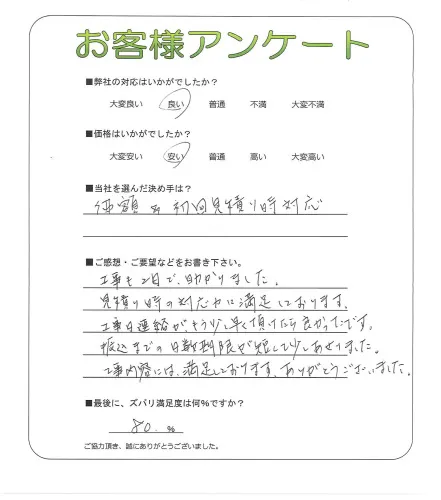 お客様アンケート
■弊社の対応はいかがでしたか?
大変良い 良い 普通 不満 大変不満
■価格はいかがでしたか?
大変安い 安い 普通 高い 大変高い
■当社を選んだ決め手は?
価額&初回見積り時対応
■ご感想・ご要望などをお書き下さい。
工事も2日で、助かりました。
見積り時の対応力に満足しております。
工事日連絡がもう少し早く頂けたら良かったです。
振込までの日数期限が短くて少しあせりました。
工事内容には、満足しております。ありがとうございました。
■最後に、ズバリ満足度は何%ですか?
80.%
ご協力頂き、誠にありがとうございました。